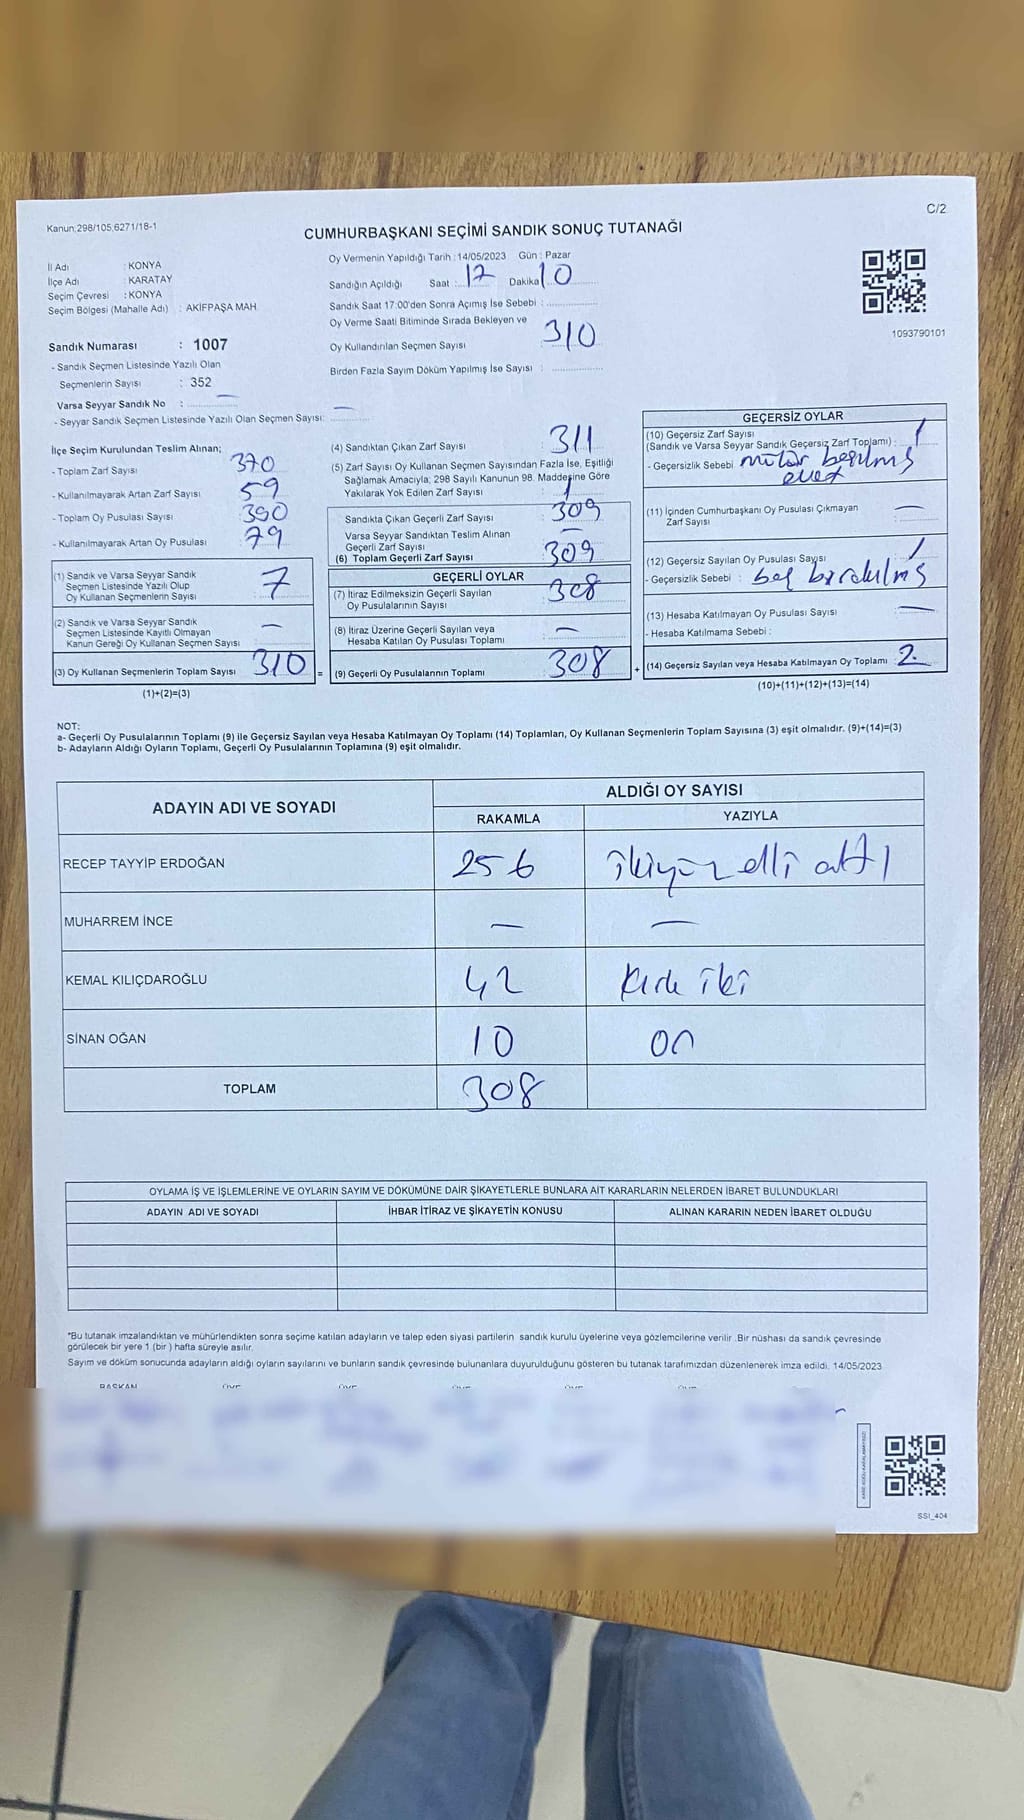 Kanun;298/105,6271/18-1
C/2
CUMHURBAŞKANI SEÇİMİ SANDIK SONUÇ TUTANAĞI
İl Adı : KONYA
İlçe Adı : KARATAY
Seçim Çevresi : KONYA
Seçim Bölgesi (Mahalle Adı) : AKİFPAŞA MAH
Sandık Numarası : 1007
- Sandık Seçmen Listesinde Yazılı Olan
Seçmenlerin Sayısı : 352
Varsa Seyyar Sandık No : —
- Seyyar Sandık Seçmen Listesinde Yazılı Olan Seçmen Sayısı: —
Oy Vermenin Yapıldığı Tarih : 14/05/2023 Gün : Pazar
Sandığın Açıldığı Saat : 17 Dakika : 10
Sandık Saat 17:00'den Sonra Açımış İse Sebebi :
Oy Verme Saati Bitiminde Sırada Bekleyen ve
Oy Kullandırılan Seçmen Sayısı 310
Birden Fazla Sayım Döküm Yapılmış İse Sayısı :
1093790101
İlçe Seçim Kurulundan Teslim Alınan;
- Toplam Zarf Sayısı 370
- Kullanılmayarak Artan Zarf Sayısı 59
- Toplam Oy Pusulası Sayısı 390
- Kullanılmayarak Artan Oy Pusulası 79
(1) Sandık ve Varsa Seyyar Sandık
Seçmen Listesinde Yazılı Olup
Oy Kullanan Seçmenlerin Sayısı : 7
(2) Sandık ve Varsa Seyyar Sandık
Seçmen Listesinde Kayıtlı Olmayan
Kanun Gereği Oy Kullanan Seçmen Sayısı : —
(3) Oy Kullanan Seçmenlerin Toplam Sayısı 310 =
(1)+(2)=(3)
(4) Sandıktan Çıkan Zarf Sayısı : 311
(5) Zarf Sayısı Oy Kullanan Seçmen Sayısından Fazla İse, Eşitliği
Sağlamak Amacıyla; 298 Sayılı Kanunun 98. Maddesine Göre
Yakılarak Yok Edilen Zarf Sayısı : 1
Sandıkta Çıkan Geçerli Zarf Sayısı : 309
Varsa Seyyar Sandıktan Teslim Alınan
Geçerli Zarf Sayısı : —
(6) Toplam Geçerli Zarf Sayısı 309
GEÇERLİ OYLAR
(7) İtiraz Edilmeksizin Geçerli Sayılan
Oy Pusulalarının Sayısı : 308
(8) İtiraz Üzerine Geçerli Sayılan veya
Hesaba Katılan Oy Pusulası Toplamı : —
(9) Geçerli Oy Pusulalarının Toplamı : 308 +
GEÇERSİZ OYLAR
(10) Geçersiz Zarf Sayısı
(Sandık ve Varsa Seyyar Sandık Geçersiz Zarf Toplamı) : 1
- Geçersizlik Sebebi : basılmış
evet
(11) İçinden Cumhurbaşkanı Oy Pusulası Çıkmayan
Zarf Sayısı : —
(12) Geçersiz Sayılan Oy Pusulası Sayısı : 1
- Geçersizlik Sebebi : boş
(13) Hesaba Katılmayan Oy Pusulası Sayısı : —
- Hesaba Katılmama Sebebi :
(14) Geçersiz Sayılan veya Hesaba Katılmayan Oy Toplamı : 2
(10)+(11)+(12)+(13)=(14)
NOT:
a- Geçerli Oy Pusulalarının Toplamı (9) ile Geçersiz Sayılan veya Hesaba Katılmayan Oy Toplamı (14) Toplamları, Oy Kullanan Seçmenlerin Toplam Sayısına (3) eşit olmalıdır. (9)+(14)=(3)
b- Adayların Aldığı Oyların Toplamı, Geçerli Oy Pusulalarının Toplamına (9) eşit olmalıdır.
ADAYIN ADI VE SOYADI
ALDIĞI OY SAYISI
RAKAMLA YAZIYLA
RECEP TAYYİP ERDOĞAN 256 ikiyüz elli altı
MUHARREM İNCE — —
KEMAL KILIÇDAROĞLU 42 kırk iki
SİNAN OĞAN 10 on
TOPLAM 308
OYLAMA İŞ VE İŞLEMLERİNE VE OYLARIN SAYIM VE DÖKÜMÜNE DAİR ŞİKAYETLERLE BUNLARA AİT KARARLARIN NELERDEN İBARET BULUNDUKLARI
ADAYIN ADI VE SOYADI İHBAR İTİRAZ VE ŞİKAYETİN KONUSU ALINAN KARARIN NEDEN İBARET OLDUĞU
"Bu tutanak imzalandıktan ve mühürlendikten sonra seçime katılan adayların ve talep eden siyasi partilerin sandık kurulu üyelerine veya gözlemcilerine verilir .Bir nüshası da sandık çevresinde
görülecek bir yere 1 (bir ) hafta süreyle asılır.
Sayım ve döküm sonucunda adayların aldığı oyların sayılarını ve bunların sandık çevresinde bulunanlara duyurulduğunu gösteren bu tutanak tarafımızdan düzenlenerek imza edildi. 14/05/2023
BAŞKAN ÜYE ÜYE ÜYE ÜYE ÜYE
SSI_404